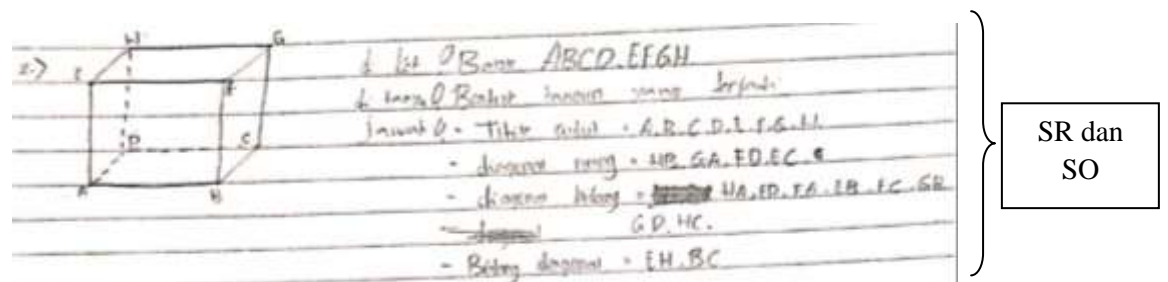 2.) H G
E F
D C
A B
Dik : Balok ABCD.EFGH
yang terjadi
Jawab : - Titik sudut = A.B.C.D.E.F.G.H.
- diagonal ruang = HB.GA.FD.EC
- diagonal bidang = HA.ED.FA.EB.FC.GB
GD.HC.
- Bidang diagonal = EH.BC
SR dan
SO